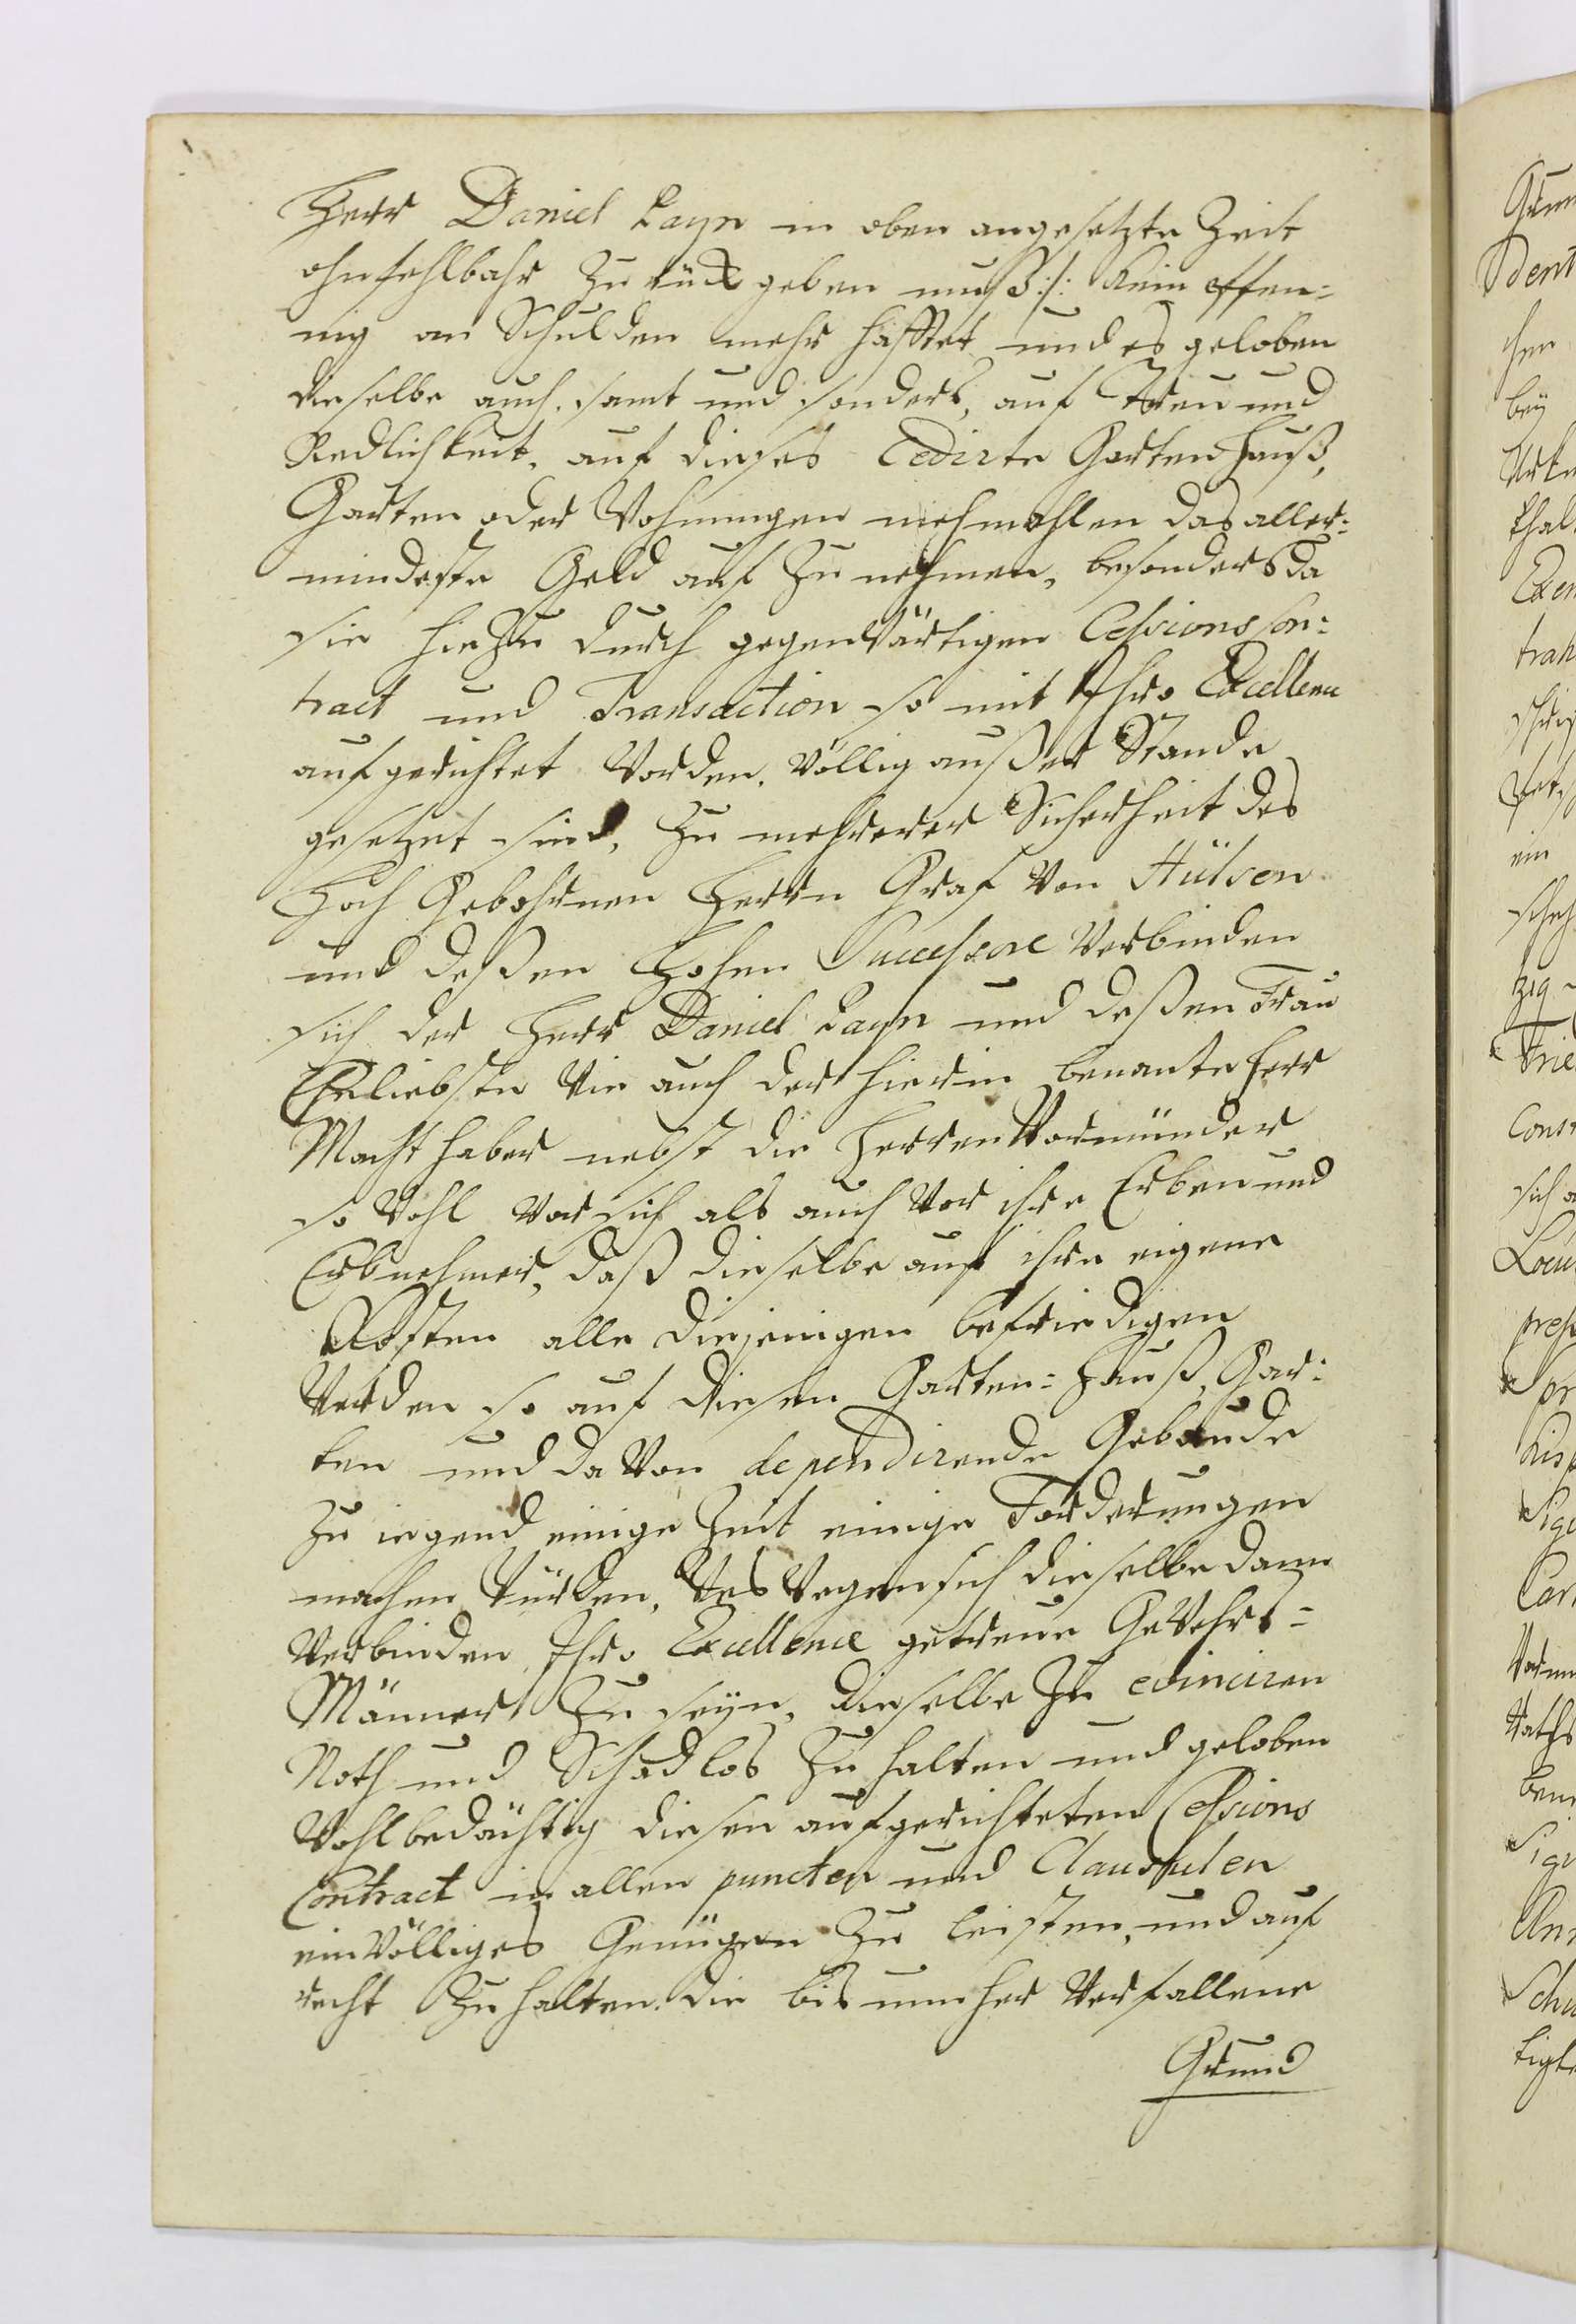 Herr Daniel Layn in oben angesetzte Zeit
ohnfehlbahr zurück geben muß :/: kein Pfen=
nig an Schulden mehr hafftet und es geloben
dieselbe auch samt und sonders, auf Treu und
Redlichkeit, auf dieses Cedirte Gartenhauß,
Garten oder Wohnungen niehmahlen das aller=
mindeste Geld auf zu nehmen, besonders da
sie hiezu durch gegenwärtigen Cessions Con=
tract und Transaction so mit Ihro Excellence
aufgerichtet worden, völlig außer Stande
gesetzet sind, Zu mehrerer Sicherheit des
Hoch Gebohrnen Herrn Graf von Hülsen
und deßen Hohen Successore verbinden
sich der Herr Daniel Layn und deßen Frau
Eheliebste wie auch der hierin benante Herr
Macht haber nebst die Herren Vormünder
so wohl vor sich als auch vor ihre Erben und
Erbnehmer, daß dieselbe auf ihre eigene
Kosten alle diejenigen befriedigen
werden so auf diesen Garten= Hauß, Gar=
ten und davon dependirende Gebäude
zu irgend einige Zeit einige Forderungen
machen würden, weswegen sich dieselbe dann
verbinden Ihro Excellence getreue Gewehrs=
Männer zu seyn, dieselbe zu evinciren
Noth und Schadlos zu halten und geloben
wohlbedächtig diesen aufgerichteten Cessions
Contract in allen puncten und Clausulen
ein völliges Genügen zu leisten, und auf
recht zu halten. die bis nun her verfallene
Grund